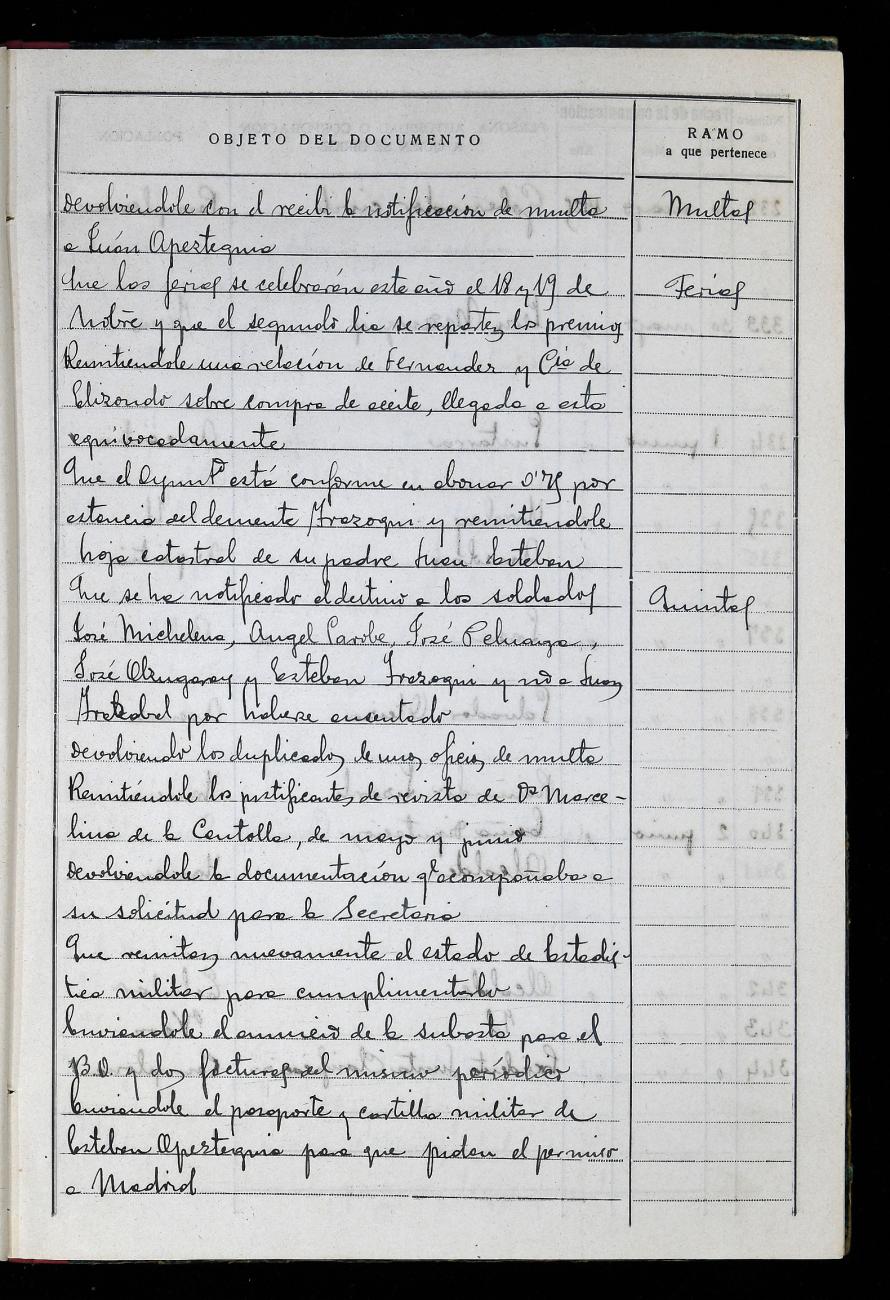 OBJETO DEL DOCUMENTO
RAMO
a que pertenece
Devolviendole con el recibi la notificación de multa
Multas
a Juán Apezteguia
Que las ferias se celebrarán este año el 18 y 19 de
Ferias
Nobre y que el segundo dia se reparten los premios
Remitiendole una relación de Fernandez y Cia de
Elizondo sobre compra de aceite, llegada a esta
equivocadamente
Que el Aymtº está conforme en abonar 0'75 por
estancia del demente Irazoqui y remitiéndole
hoja catastral de su padre Juan Esteban
Que se ha notificado el destino a los soldados
Quintas
José Michelena, Angel Larobe, José Peluaga,
José Olzugaray y Esteban Irazoqui y no a Juan
por haberse ausentado
Devolviendo los duplicados de unos oficios de multa
Remitiéndole los justificantes de revista de Dª Marce-
lina de la Cantolla, de mayo y junio
Devolviendole la documentación qe acompañaba a
su solicitud para la Secretaria
Que remitan nuevamente el estado de Estadis-
tica militar para cumplimentarlo
Enviandole el anuncio de la subasta para el
B.O. y dos facturas del mismo periódico
Enviandole el pasaporte y cartilla militar de
Esteban Apezteguia para que pidan el permiso
a Madrid